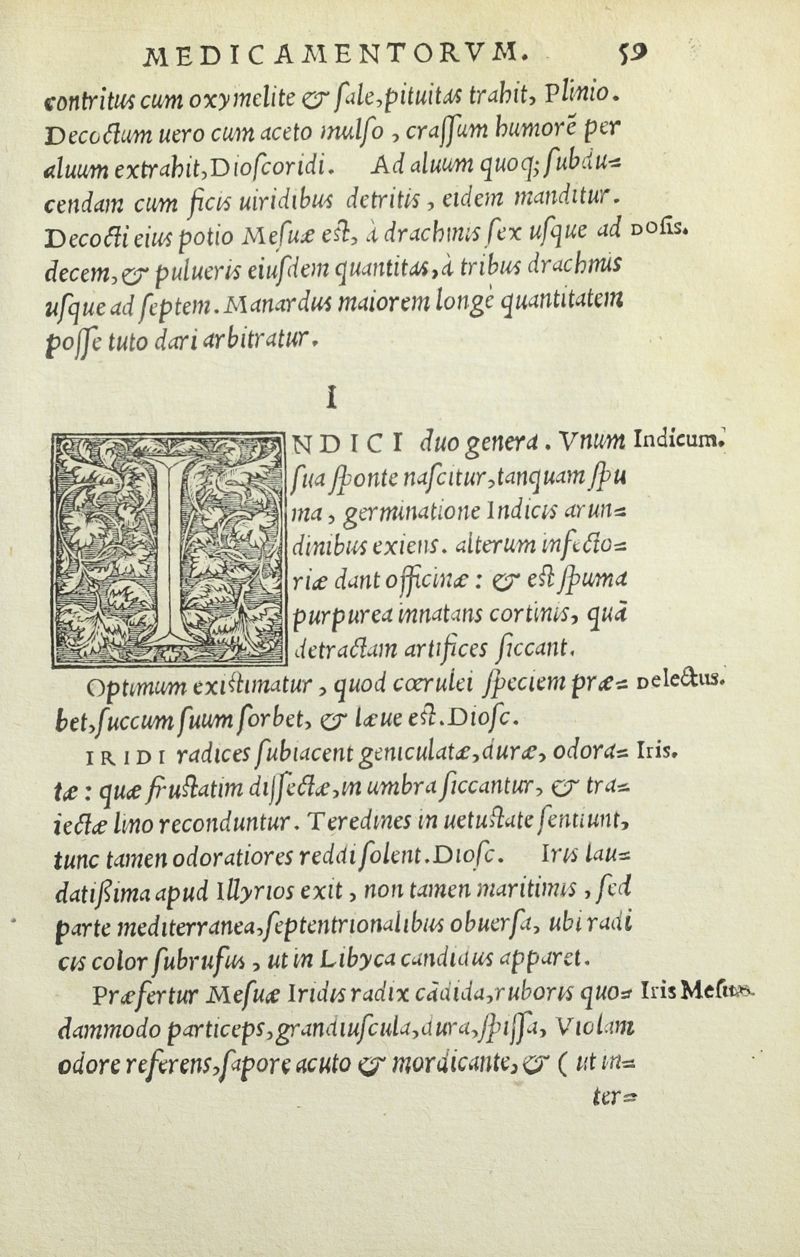 MEDICAMENTORVM. 59
contritus cum oxymelite & ſale, pituitas trahit, Plinio.
Decoctum uero cum aceto mulſo, craſſum humorē per
aluum extrahit, Dioſcoridi. Ad aluum quoq; ſubdu=
cendam cum ficis uiridibus detritis, eidem manditur.
Decocti eius potio Meſuæ eſt, à drachmis ſex uſque ad Doſis.
decem, & pulueris eiuſdem quantitas, à tribus drachmis
uſque ad ſeptem. Manardus maiorem longè quantitatem
poſſe tuto dari arbitratur.
I
INDICI duo genera. Vnum Indicum.
ſua ſponte naſcitur, tanquam ſpu
ma, germinatione Indicis arun=
dinibus exiens. alterum infecto=
riæ dant officinæ: & eſt ſpuma
purpurea innatans cortinis, quā
detractam artifices ſiccant.
Optimum exiſtimatur, quod cœrulei ſpeciem præ= Delectus.
bet, ſuccum ſuum ſorbet, & læue eſt. Dioſc.
IRIDI radices ſubiacent geniculatæ, duræ, odora= Iris.
tæ: quæ fruſtatim diſſectæ, in umbra ſiccantur, & tra=
iectæ lino reconduntur. Teredines in uetuſtate ſentiunt,
tunc tamen odoratiores reddi ſolent. Dioſc. Iris lau=
datiſsima apud Illyrios exit, non tamen maritimis, ſed
parte mediterranea, ſeptentrionalibus obuerſa, ubi radi
cis color ſubrufus, ut in Libyca candidus apparet.
Præfertur Meſuæ Iridis radix cādida, ruboris quo= Iris Meſuæ.
dammodo particeps, grandiuſcula, dura, ſpiſſa, Violam
odore referens, ſapore acuto & mordicante, & ( ut in=
ter=